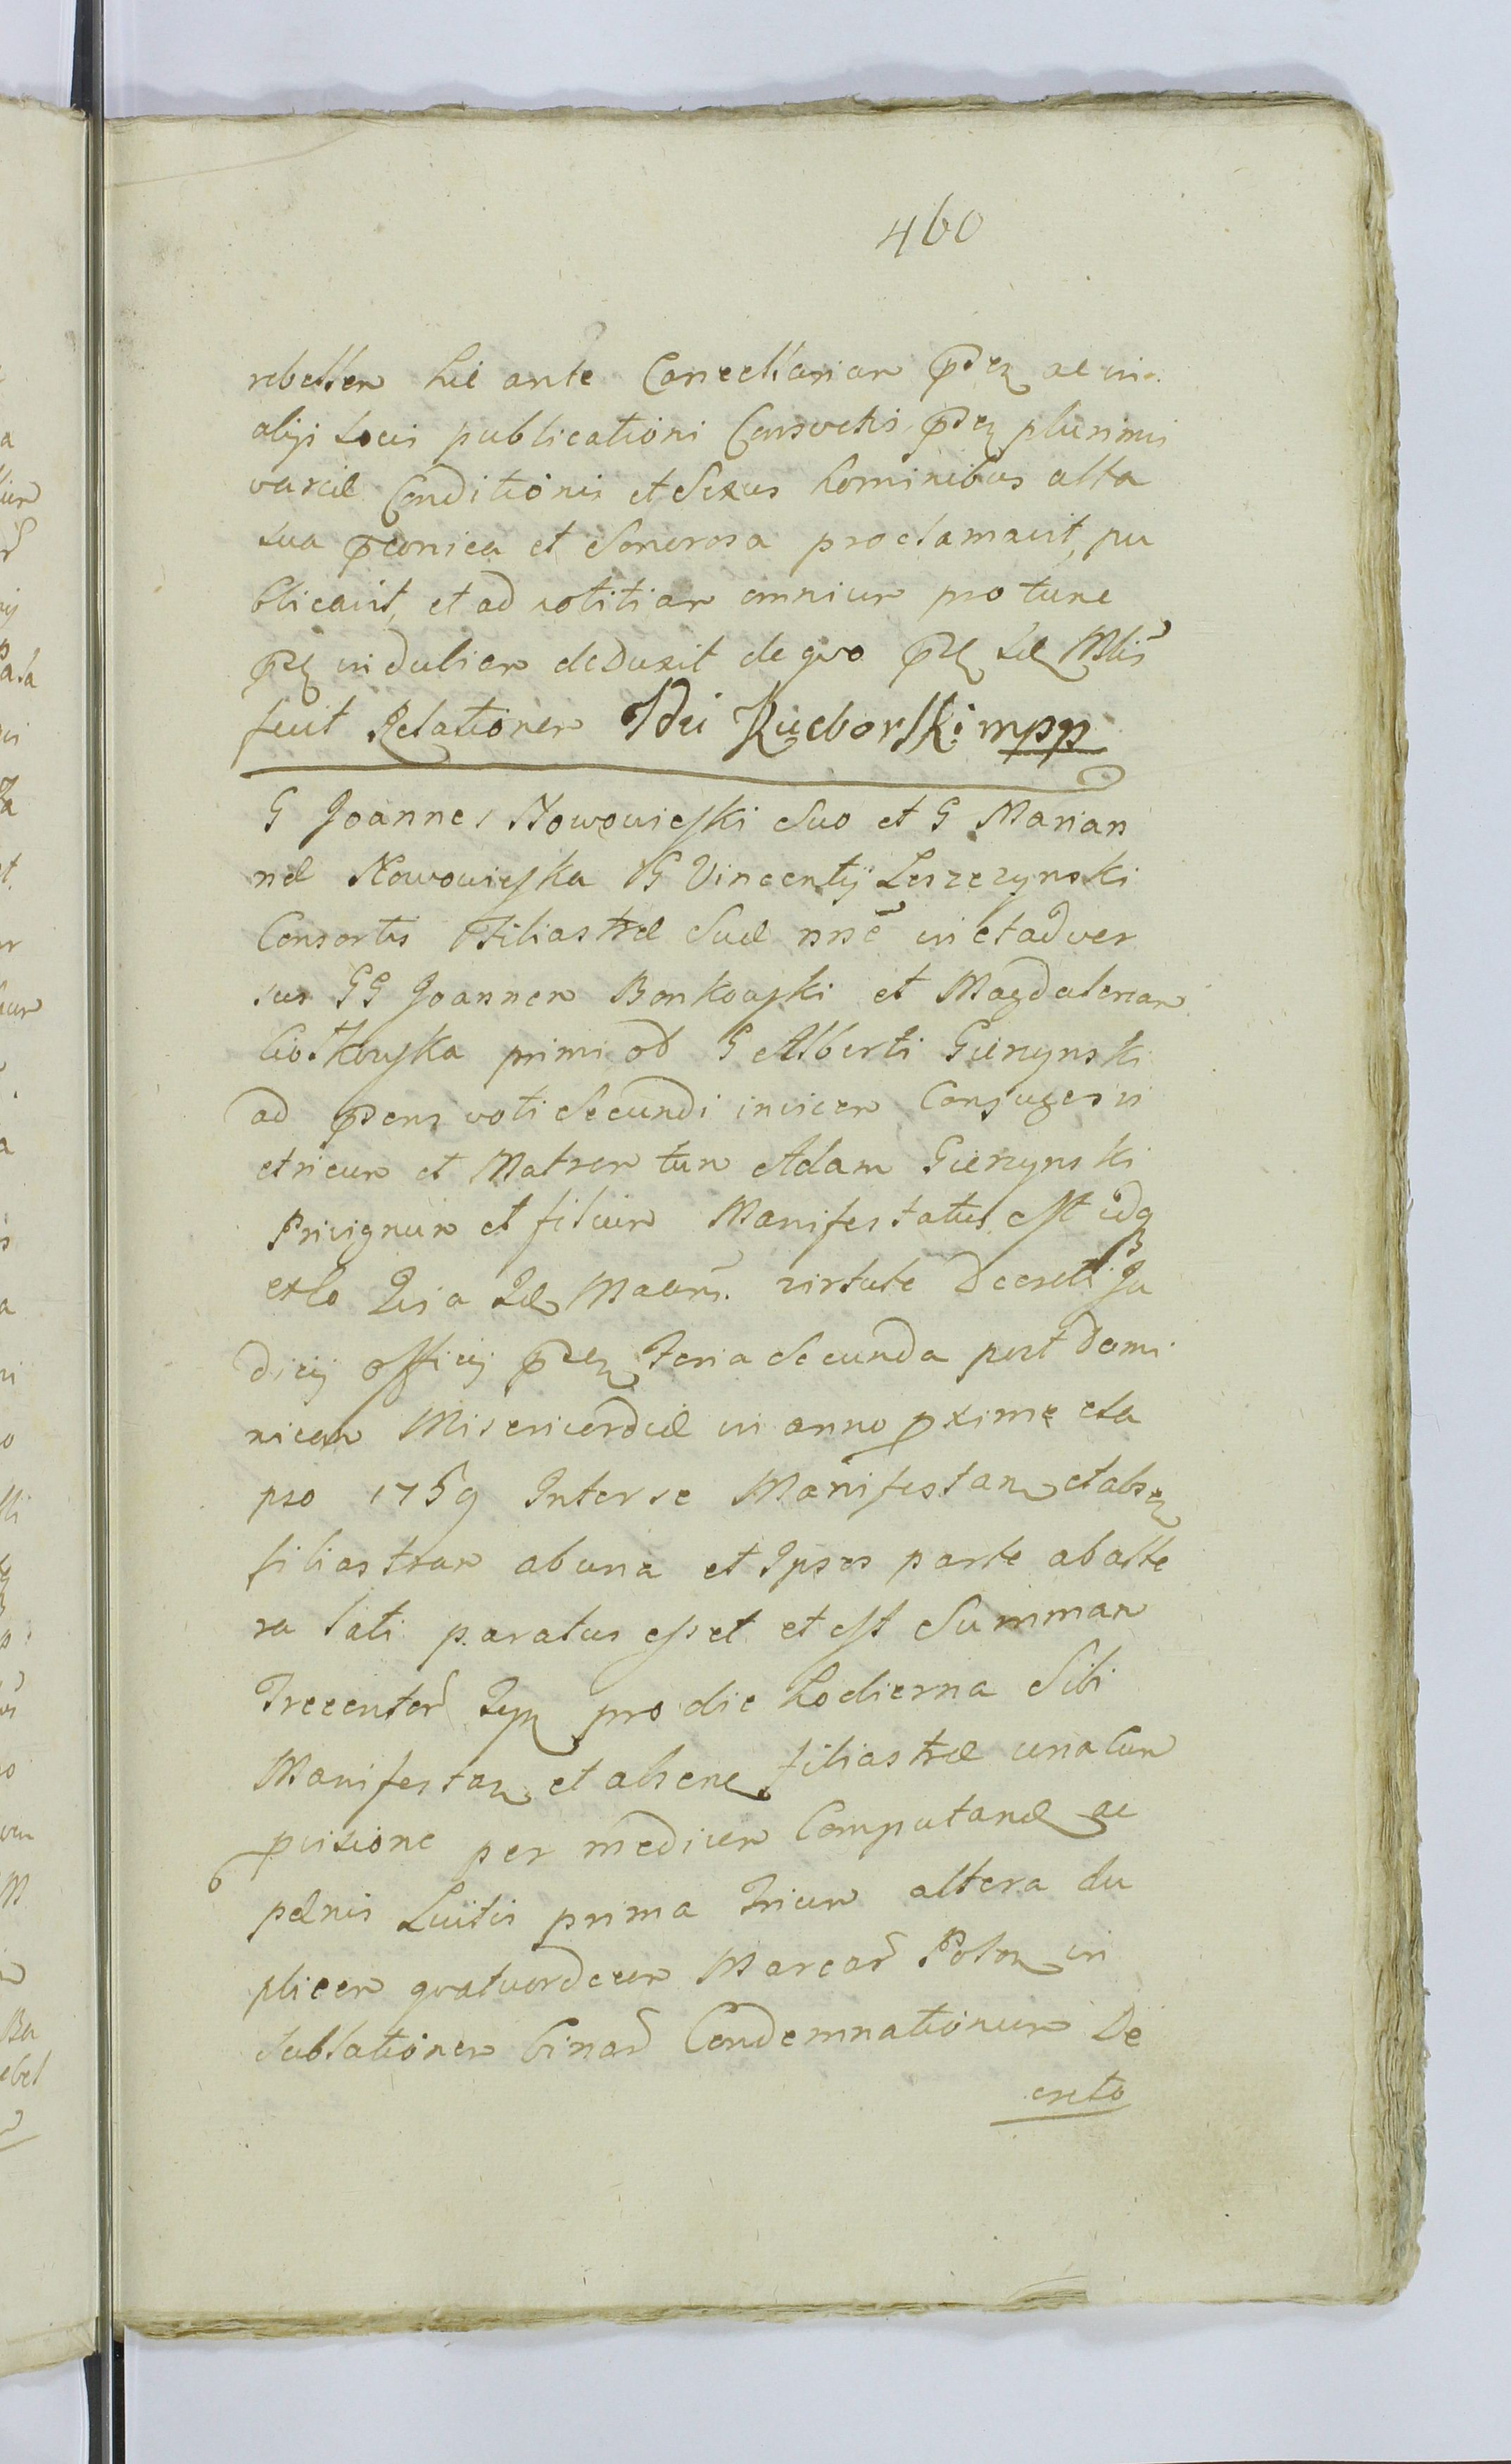 460
rebellem hic ante Cancellariam ac in
alijs locis publicationi Consvetis plurimis
variæ Conditionis et Sexus hominibus alta
sua et Sonorosa proclamavit, pu
blicavit, et ad notitiam omnium pro tunc
indubiam deduxit de qvo
fecit Relationem Idei mpp
G Joannes Nowowieyski Suo et G Marian
næ Nowowieyska G Vincentij Leszczynski
Consortis Filiastræ Suæ nnē in et adver
sus GG Joannem Bonkowski et Magdalenam
Ciotkowska primi od G Alberti Gierzynski
ad voti Secundi invicem Conjuges vi
etricum et Matrem tum Adam Gierzynski
Privignum et filium Manifestatus est idq
ex eo Quia virtute Decreti Ju
dicij officij Feria Secunda post Domi
nicam Misericordiæ in anno pxime ela
pso 1759 Inter se Manifestan et absen
filiastram ab una et Ipsos parte ab alte
ra lati paratus esset et est Summam
Trecentor pro die hodierna Sibi
Manifestan et absenti filiastræ una cum
pvisione per medium Computand ac
pænis Luitis prima trium altera du
plicem qvatuordecem Marcar Polon in
Sublationem binar Condemnationum De
creto